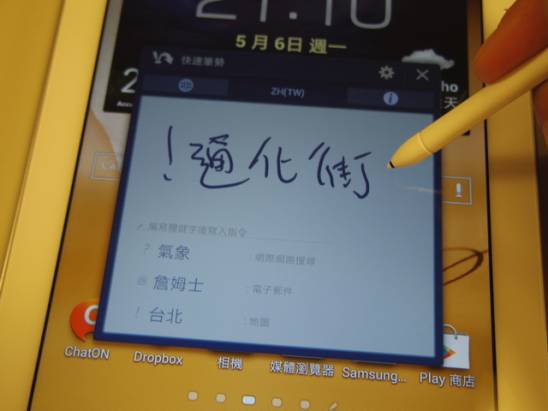 21:10
5 月 6 日 週一
快速筆勢
ZH(TW)
! 通化街
編寫關鍵字後寫入指令
? 氣象 : 網際網路搜尋
@ 詹姆士 : 電子郵件
! 台北 : 地圖
ChatON
Dropbox
相機
媒體瀏覽器
Samsung...
Play 商店